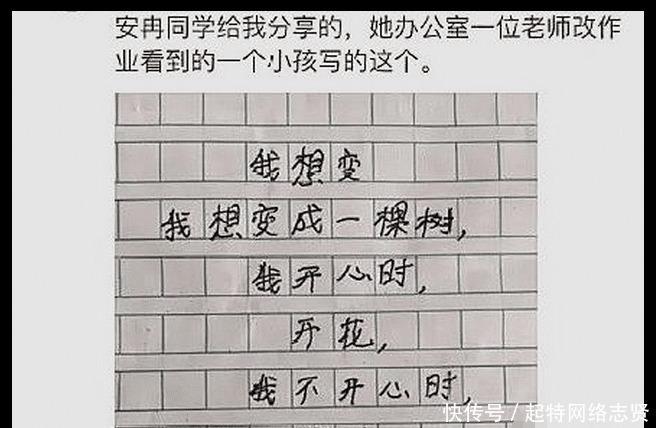 安冉同学给我分享的，她办公室一位老师改作
业看到的一个小孩写的这个。
我想变
我想变成一棵树，
我开心时，
开花，
我不开心时，
快传号／起特网络志贤